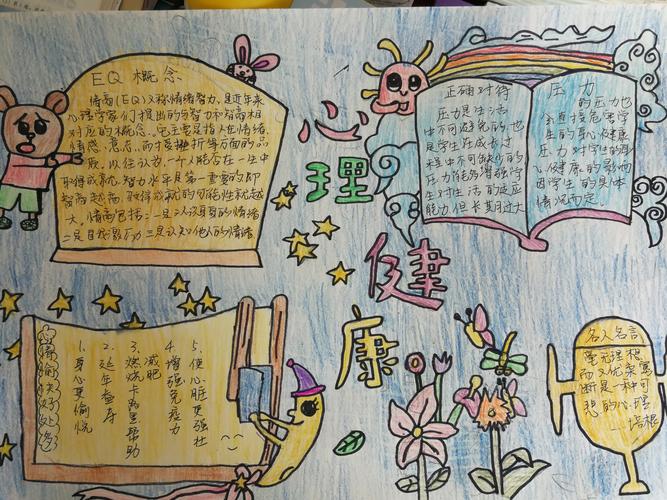 EQ概念
情商(EQ)又称情绪智力,是近年来
心理学家们提出的与智力和智商相
对应的概念。它主要是指人在情绪、
情感、意志、耐受挫折等方面的品
质。以往认为,一个人能否在一生中
取得成就,智力水平是第一重要的,即
智商越高,取得成就的可能性就越
大。情商包括:一是认识自身的情绪
二是自我激励 三是认知他人的情绪
心理健康
正确对待
压力是生活
中不可避免的,也
是学生在成长过
程中不可缺少的
压力能够增强学
生对生活的适应
能力但长期过大
压力
的压力也
会直接危害学
生的身心健康
压力对学生的身
心健康的影响
因学生的具体
情况而定。
愉快好处
1.身心更愉悦
2.延年益寿
3.燃烧卡路里帮助
减肥
4.增强免疫力
5.使心脏更强壮
名人名言
毫无理想
而又优柔寡
断是一种可
悲的心理
——培根